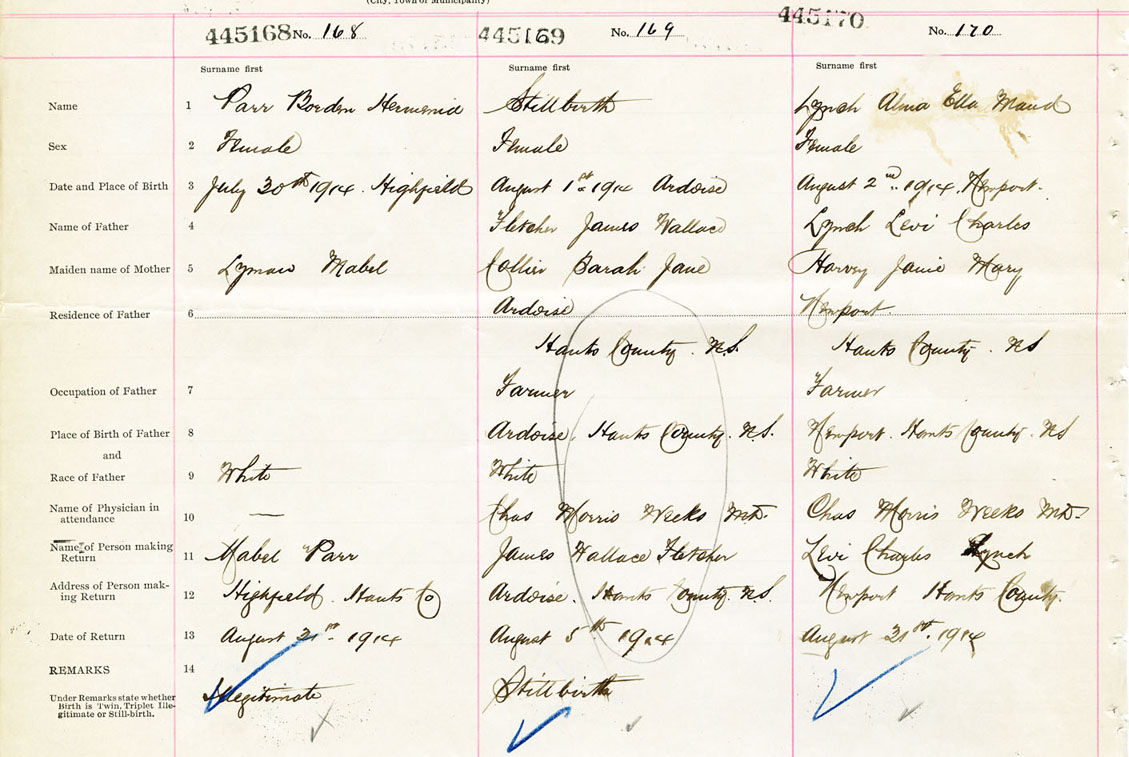 (City, Town or Municipality)
445168 No. 168 445169 No. 169 445170 No. 170
Surname first Surname first Surname first
Name 1 Parr Borden Stillbirth Lynch Alma Ella Maud
Sex 2 Female Female Female
Date and Place of Birth 3 July 30th 1914. Highfield August 1st 1914 Ardoise August 2nd 1914. Newport.
Name of Father 4 Fletcher James Wallace Lynch Levi Charles
Maiden name of Mother 5 Mabel Collier Sarah Jane Harvey Janie Mary
Residence of Father 6 Ardoise Newport
Hants County. N.S. Hants County. NS
Occupation of Father 7 Farmer Farmer
Place of Birth of Father 8 Ardoise. Hants County. N.S. Newport. Hants County. NS
and
Race of Father 9 White White White
Name of Physician in
attendance 10 — Chas Morris Weeks M.D. Chas Morris Weeks M.D.
Name of Person making
Return 11 Mabel Parr James Wallace Fletcher Levi Charles Lynch
Address of Person mak-
ing Return 12 Highfield. Hants Co Ardoise. Hants County. N.S. Newport Hants County.
Date of Return 13 August 31st 1914 August 5th 1914 August 31st. 1914
REMARKS 14
Under Remarks state whether
Birth is Twin, Triplet Ille-
gitimate or Still-birth.
Illegitimate Stillbirth